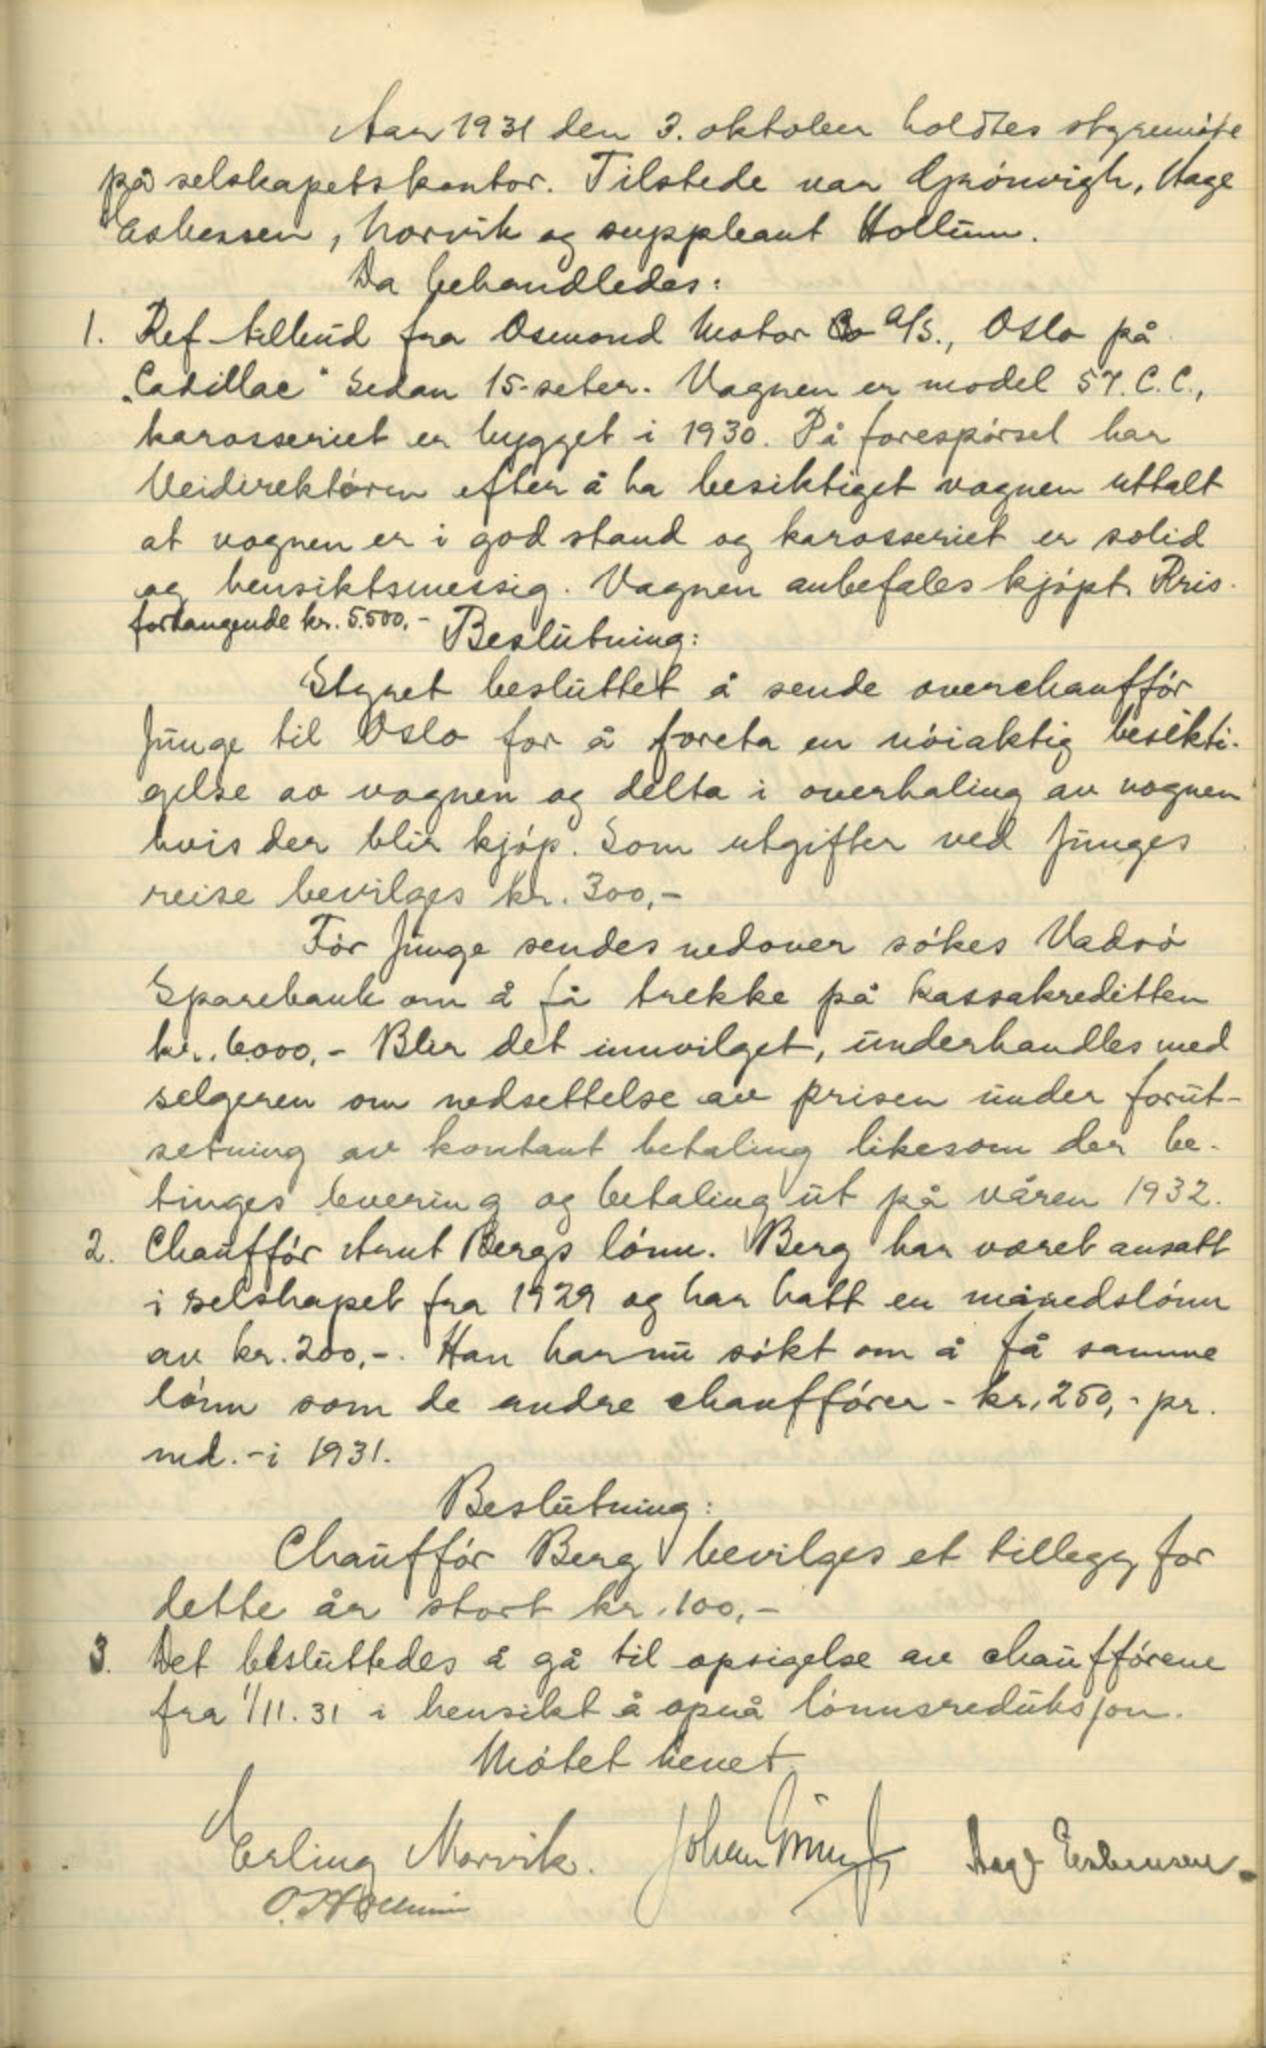 Aar 1931 den 3. oktober holdtes styremøte
på selskapets kontor. Tilstede var Grønvigh, Aage
Esbensen, Norvik og suppleant Hollum.
Da behandledes:
1. Ref tilbud fra Osmond Motor Co A/S., Oslo på
"Cadillac" Sedan 15-seter. Vagnen er model 57.C.C.,
karosseriet er bygget i 1930. På forespørsel har
Veidirektøren efter å ha besiktiget vognen uttalt
at vognen er i god stand og karosseriet er solid
og hensiktsmessig. Vagnen anbefales kjøpt. Pris-
forlangende kr. 5.500,-
Beslutning:
Styret besluttet å sende overchauffør
Junge til Oslo for å foreta en nøiaktig besikti-
gelse av vognen og delta i overhaling av vognen
hvis der blir kjøp. Som utgifter ved Junges
reise bevilges kr. 300,-
Før Junge sendes nedover søkes Vadsø
Sparebank om å få trekke på kassakreditten
kr. 6.000,- Blir det innvilget, underhandles med
selgeren om nedsettelse av prisen under forut-
setning av kontant betaling likesom der be-
tinges levering og betaling ut på våren 1932.
2. Chauffør Arnt Bergs lønn. Berg har været ansatt
i selskapet fra 1929 og har hatt en månedslønn
av kr. 200,-. Han har nu søkt om å få samme
lønn som de andre chauffører - kr. 250,- pr.
md. - i 1931.
Beslutning:
Chauffør Berg bevilges et tillegg for
dette år stort kr. 100,-
3. Det besluttedes å gå til opsigelse av chaufførene
fra 1/11.31 i hensikt å opnå lønnsreduksjon.
Møtet hevet.
Erling Norvik. Johan Aage Esbensen.
O. Hollum